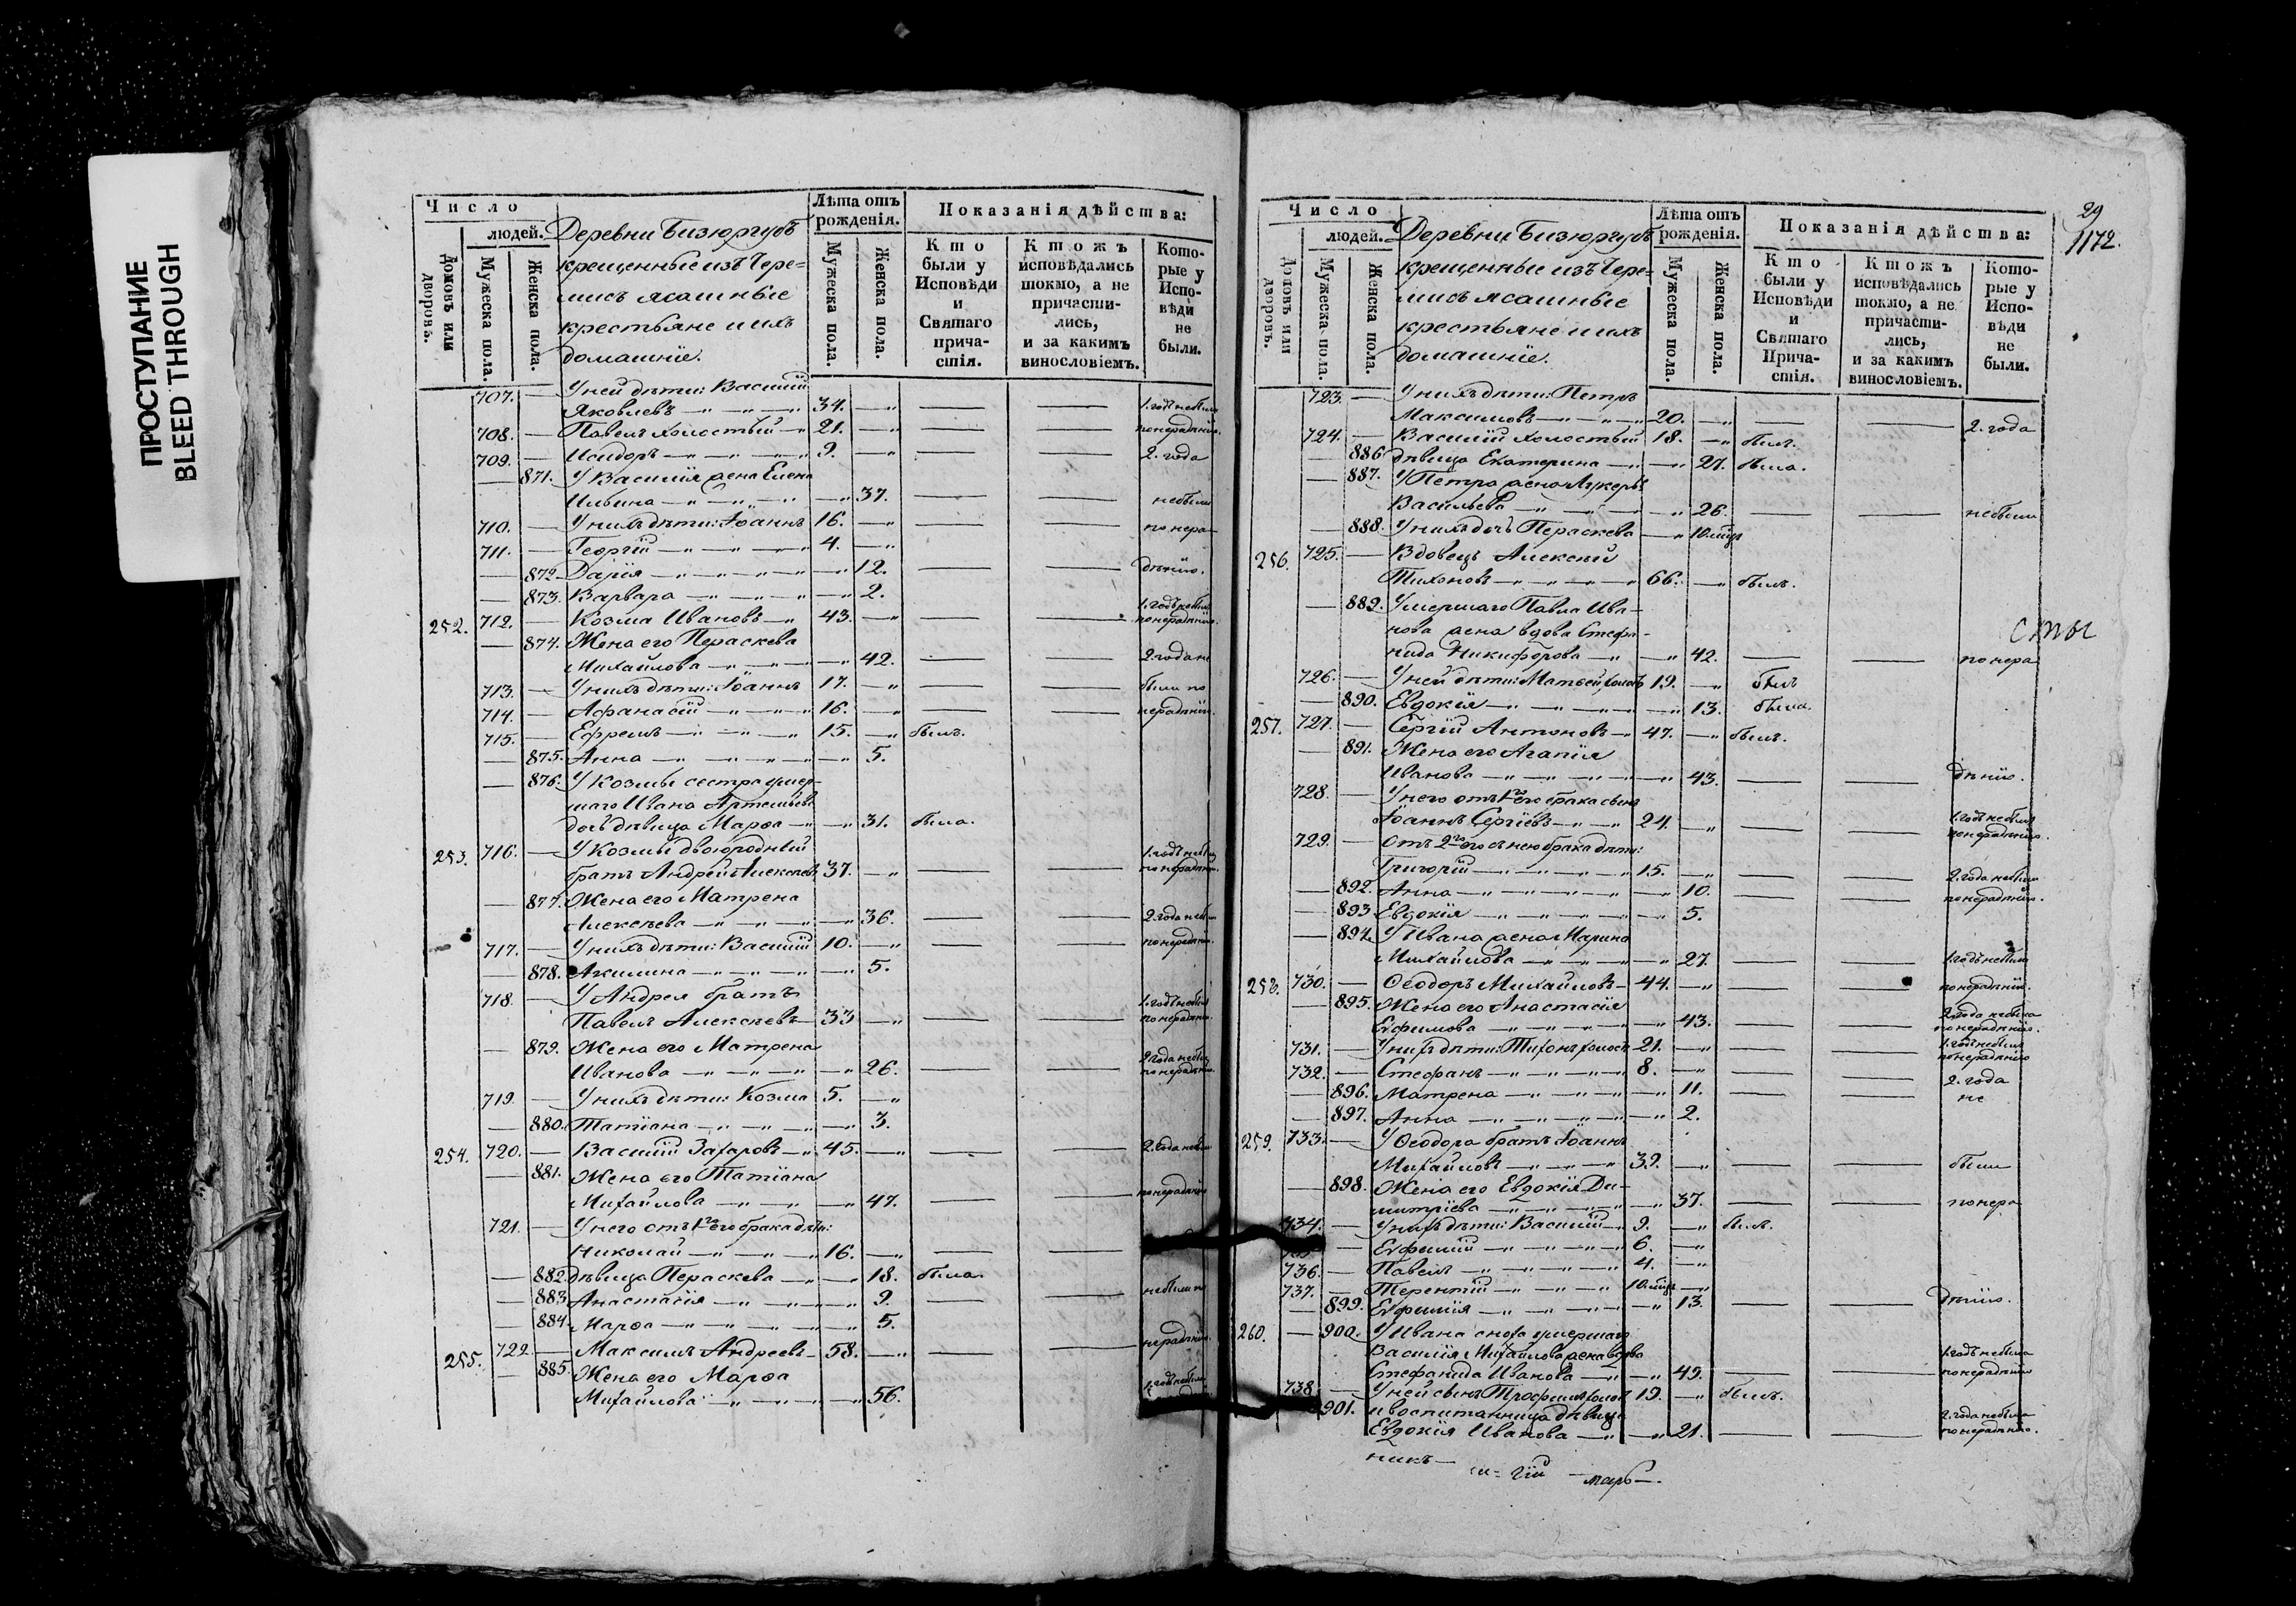 ПРОСТУПАНИЕ
BLEED THROUGH
Число
людей.
Домовъ или дворовъ.
Мужеска пола.
Женска пола.
Деревни Бизюргубъ
крещенные изъ Чере-
мисъ ясашные
крестьяне и ихъ
домашніе.
Лѣта отъ рожденія.
Мужеска пола.
Женска пола.
Показанія дѣйства:
Кто были у Исповѣди и Святаго прича- стія.
Ктожъ исповѣдались токмо, а не причасти- лись, и за какимъ винословіемъ.
Кото- рые у Испо- вѣди не были.
707. — У ней дѣти: Василій
Яковлевъ 34. 1. годъ небылъ
708. — Павелъ холостый 21. понерадѣнію.
709. — Исидоръ 9. 2. года
— 871. У Василія жена Елена
Ильина 37. небыли
710. — У нихъ дѣти: Іоаннъ 16. понера
711. — Георгій 4.
— 872. Дарія 12. дѣнію.
— 873. Варвара 2.
252. 712. — Козма Ивановъ 43. 1. годъ небылъ понерадѣнію.
— 874. Жена его Пераскева
Михайлова 42. 2. года не
713. — У нихъ дѣти: Іоаннъ 17. были по
714. — Афанасій 16. нерадѣнію.
715. — Ефремъ 15. былъ.
— 875. Анна 5.
— 876. У Козмы сестра умер-
шаго Ивана Артемьева
дочь дѣвица Марѳа 31. была.
253. 716. — У Козмы двоюродный
братъ Андрей Алексѣевъ 37. 1. годъ небылъ понерадѣнію.
— 877. Жена его Матрена
Алексѣева 36. 2. года небыли
717. — У нихъ дѣти: Василій 10. понерадѣнію.
— 878. Акилина 5.
718. — У Андрея братъ
Павелъ Алексѣевъ 33 1. годъ небылъ понерадѣнію.
— 879. Жена его Матрена
Иванова 26. 2. года небыла понерадѣнію.
719. — У нихъ дѣти: Козма 5.
— 880. Татіана 3.
254. 720. — Василій Захаровъ 45. 2. года небыли
— 881. Жена его Татіана
Михайлова 47. понерадѣнію
721. — У него отъ 1го его брака дѣти:
Николай 16.
— 882. дѣвица Пераскева 18. была.
— 883. Анастасія 9. небыли по
— 884. Марѳа 5.
255. 722. — Максимъ Андреевъ 58. нерадѣнію.
— 885. Жена его Марѳа
Михайлова 56. 1. годъ небыла
29
1172.
Число
людей.
Домовъ или дворовъ.
Мужеска пола.
Женска пола.
Деревни Бизюргубъ
крещенные изъ Чере-
мисъ ясашные
крестьяне и ихъ
домашніе.
Лѣта отъ рожденія.
Мужеска пола.
Женска пола.
Показанія дѣйства:
Кто были у Исповѣди и Святаго Прича- стія.
Ктожъ исповѣдались токмо, а не причасти- лись, и за какимъ винословіемъ.
Кото- рые у Испо- вѣди не были.
723. — У нихъ дѣти: Петръ
Максимовъ 20. 2. года
724. — Василій холостый 18. былъ.
— 886 дѣвица Екатерина 27. была.
— 887. У Петра жена Лукерья
Васильева 26. небыли
— 888. У нихъ дочь Пераскева 10. мѣся
256. 725. — Вдовецъ Алексѣй
Тихоновъ 66. былъ.
— 889. Умершаго Павла Ива-
нова жена вдова Стефа-
нида Никифорова 42. понера
726. — У ней дѣти: Матвей холостъ 19. былъ
— 890. Евдокія 13. была.
257. 727. — Сергій Антоновъ 47. былъ.
— 891. Жена его Агапія
Иванова 43. дѣнію.
728. — У него отъ 1го его брака сынъ
Іоаннъ Сергіевъ 24. 1. годъ небылъ понерадѣнію.
729. — Отъ 2го его съ нею брака дѣти:
Григорій 15. 2. года небыли
— 892. Анна 10. понерадѣнію.
— 893 Евдокія 5.
— 894. У Ивана жена Марина
Михайлова 27. 1. годъ небыли
258. 730. — Ѳеодоръ Михайловъ 44. понерадѣнію.
— 895. Жена его Анастасія
Ефимова 43. 2. года небыла понерадѣнію.
731. — У нихъ дѣти: Тихонъ холостъ 21. 1. годъ небылъ понерадѣнію
732. — Стефанъ 8. 2. года
— 896. Матрена 11. не
— 897. Анна 2.
259. 733. — У Ѳеодора братъ Іоаннъ
Михайловъ 39. были
— 898. Жена его Евдокія Ди-
митріева 37. понера
734. — У нихъ дѣти: Василій 9. былъ.
— Ефимій 6.
736. — Павелъ 4.
737. — Терентій 10. мѣся
— 899. Ефимія 13. дѣнію.
260. — 900. У Ивана сноха умершаго
Василія Михайлова жена вдова
Стефанида Иванова 49. 1. годъ небыла понерадѣнію
738 — У ней сынъ Трофимъ холост 19. былъ.
901. и воспитанница дѣвица
Евдокія Иванова 21. 2. года небыла понерадѣнію.